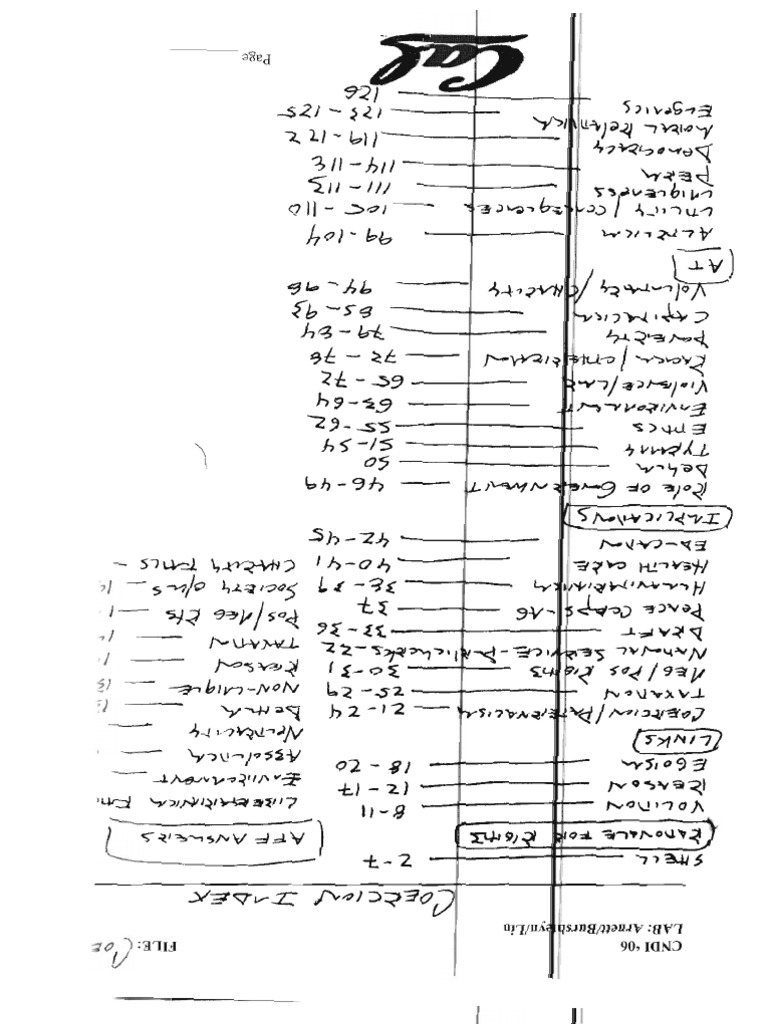 CNDI '06
LAB: Arnett/Burshteyn/Lin
FILE: COE
COERCION INDEX
SHELL 2-7
RATIONALE FOR RIGHTS
VOLITION 8-11
REASON 12-17
EGOISM 18-20
LINKS
COERCION/PATERNALISM 21-24
TAXATION 25-29
NEG/POS RIGHTS 30-31
NATIONAL SERVICE-PUBLICWORKS-32
DRAFT 33-36
PEACE CORPS-AG 37
HUMANITARIANISM 38-39
HEALTH CARE 40-41
EDUCATION 42-45
IMPLICATIONS
ROLE OF GOVERNMENT 46-49
DEHUM 50
TYRANNY 51-54
ETHICS 55-62
ENVIRONMENT 63-64
VIOLENCE/WAR 65-72
RACISM/OTHERIZATION 72-78
POVERTY 79-84
CAPITALISM 85-93
VOLUNTARY/CHARITY 94-96
AT
ALTRUISM 99-104
UTILITY/CONSEQUENCES 105-110
UNIQUENESS 111-113
DEHUM 114-118
DEMOCRACY 119-122
MORAL RELATIVISM 123-125
EUGENICS 126
AFF ANSWERS
LIBERTARIANISM
ENVIRONMENT
ABSOLUTISM
NEUTRALITY
DEHUM 13
NON-UNIQUE 13
REASON 1
TAXATION 1
POS/NEG RTS 1
SOCIETY O/WS 14
CHARITY FAILS
Cal
Page